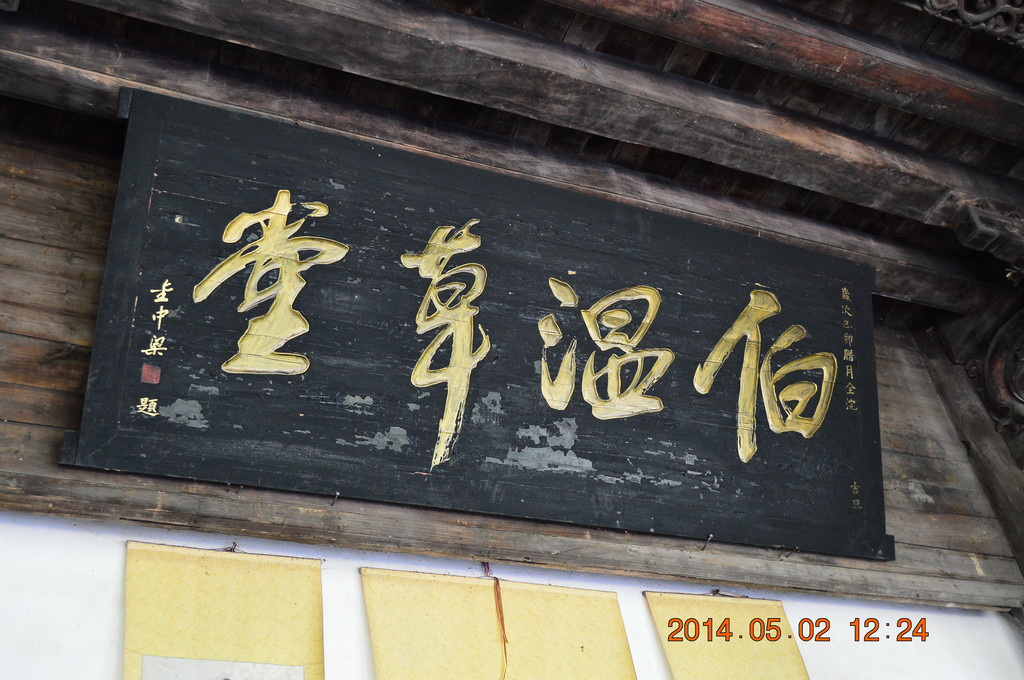 伯温草堂
歲次己卯腊月全浣
吉旦
圭中梁
題
2014.05.02 12:24